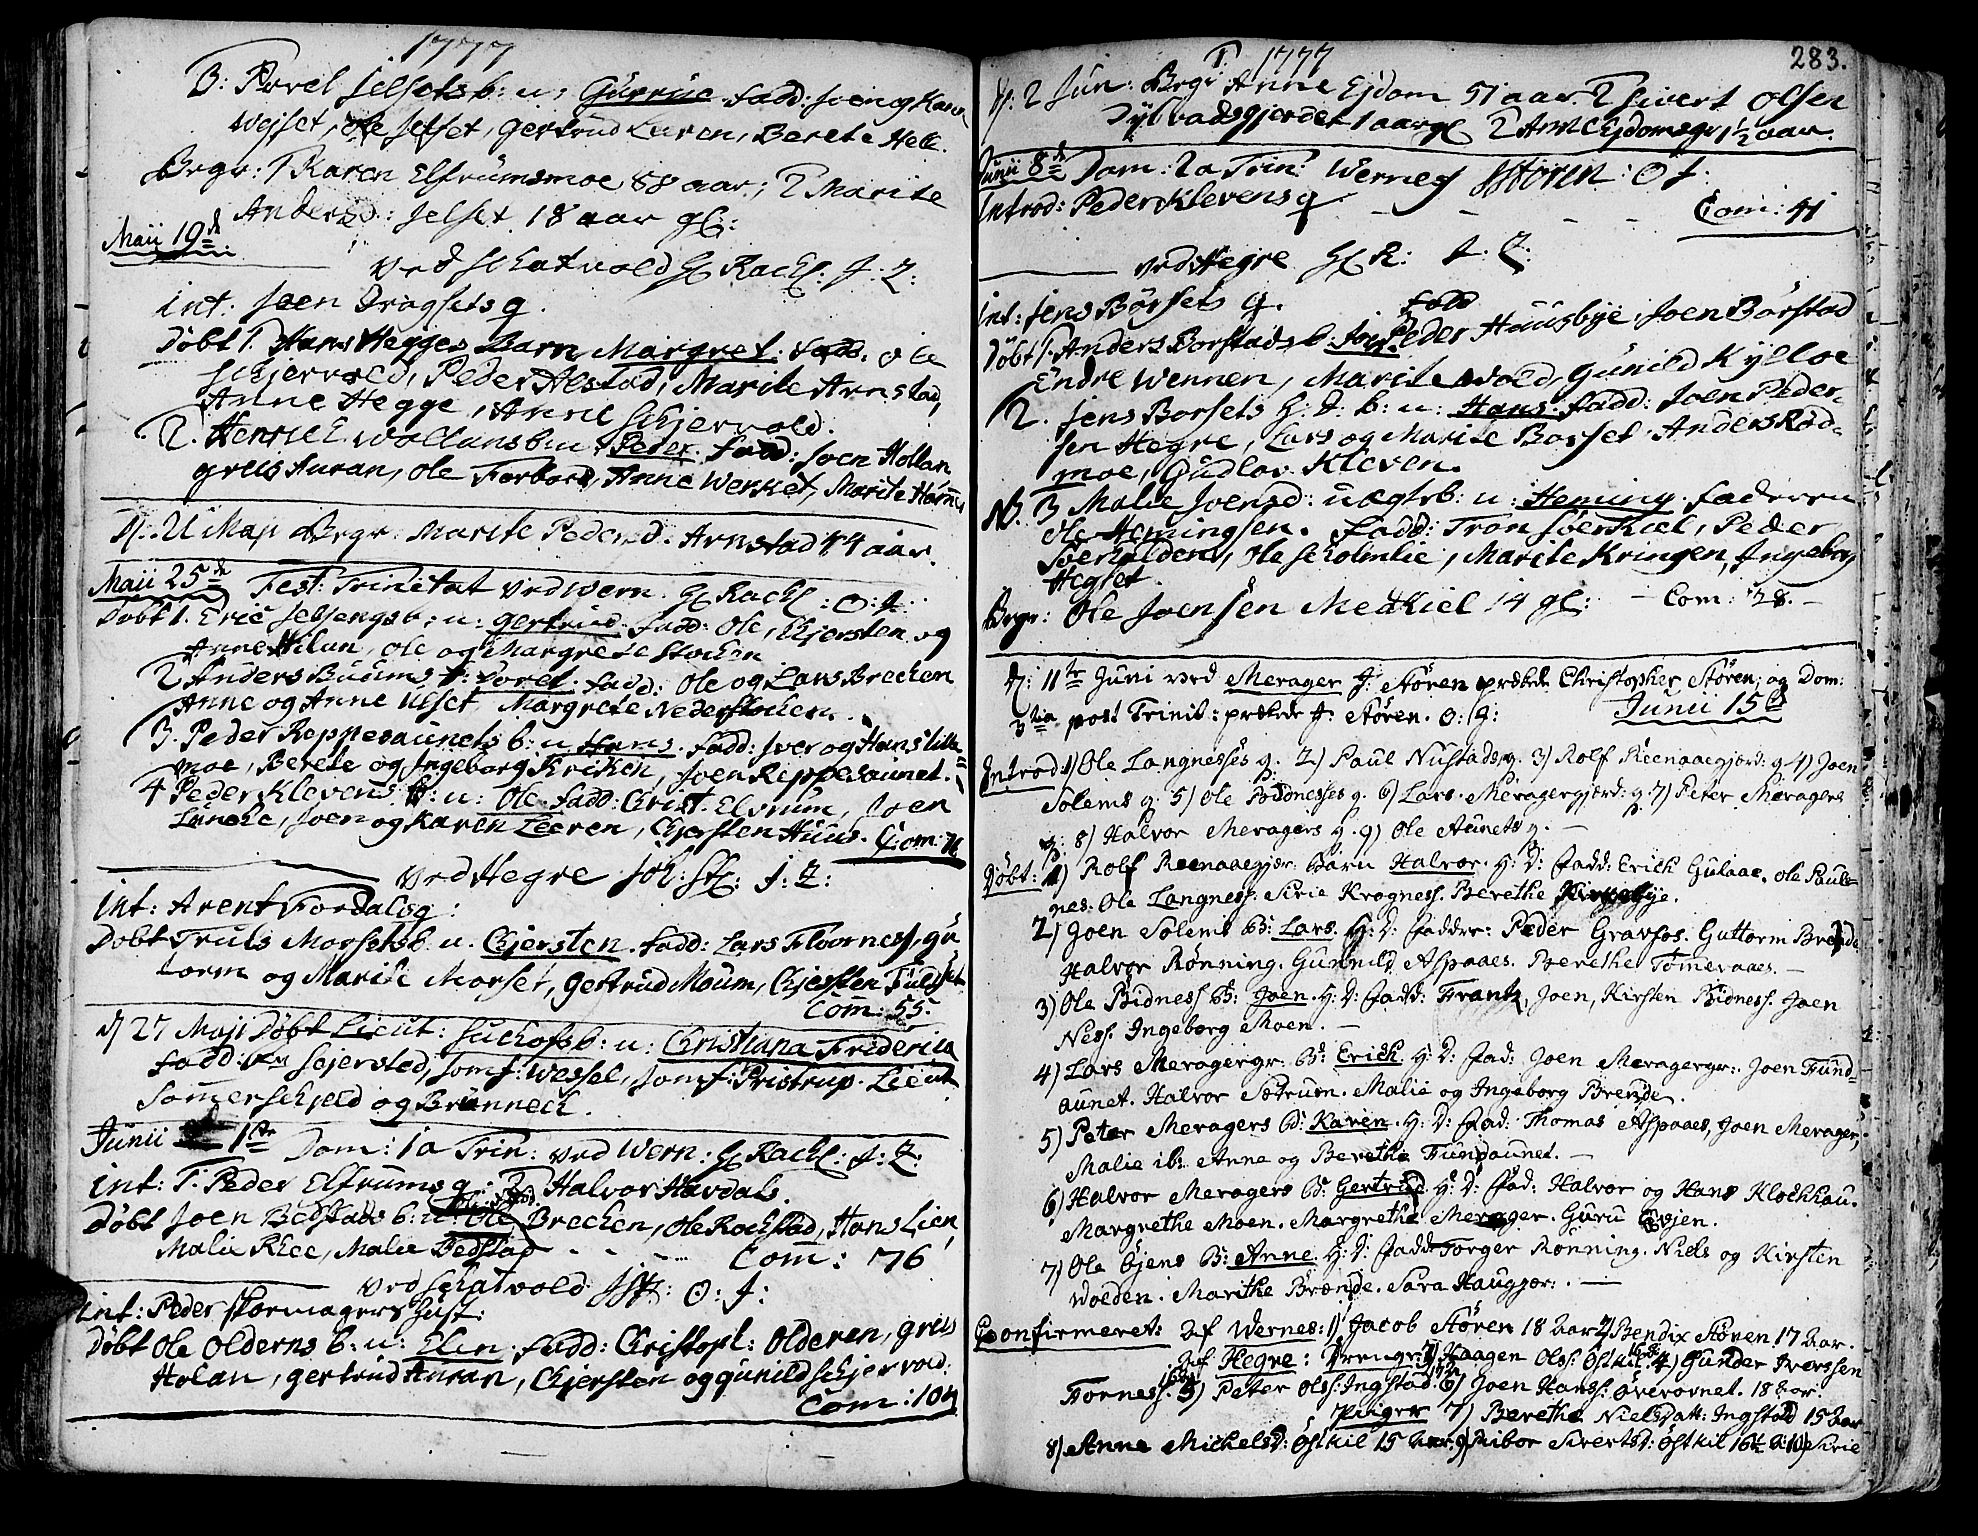 1777
3: Povel Selsets b: u: Gurrue. Fadd: Joen og Karen
Wejset, Ole Selset, Gertrud Leeren, Berete Helle.
Begr: 1 Karen Elfrumsmoe 88 aar; 2 Marite
Andersd: Selset 18 aar gl:
Maii 19de
Ved Schatvold H Rachl: S: Z:
int. Joen Dragsets q.
Døbt 1. Hans Hegges Barn Margret. Fadd. Ole
Schjervold, Peder Alstad, Marite Arnstad,
Anne Hegge, Anne Schjervold.
2. Henric Wollans b: u: Peder. Fadd: Joen Hollan
Greis Auran, Ole Forbord, Anne Werket, Marite
d. 21 Maji Begr. Marite Pedersd. Arnstad 44 aar.
Maii 25de Fest: Trinitat ved Wern. H Rachl: O: S.
Døbt 1. Eric Selsengs b: u: Gertrud. Fadd: Ole, Chjersten og
Anne Hilan, Ole og Margrete Stochen
2 Anders Buums b: Goret. Fadd: Ole og Lars Brechen
Anne og Anne Ulset Margrete Nederstochen.
3. Peder Reppesaunets b: u Hans. Fadd: Iver og Hans Lille
moe, Berete og Ingeborg Kriken, Joen Reppesaunet.
4 Peder Klevens b: u: Ole. Fadd: Christ. Elvrum, Joen
Lunche, Joen og Karen Leeren, Chjersten Huus. Com: 71
Ved Hegre Joh: St: S: Z:
int: Arent Fordals q:
Døbt Truls Morsets b. u. Chjersten. Fadd: Lars Floornes, Gu
torm og Marite Morset, Gertrud Moum, Chjersten Fulset
Com: 55.
d 27 Maji Døbt Lieut: Suchofs b: u: Christiana Friderica
Fadd: Sejersted, Jomf: Wessel, Jomf: Pristrup. Lieut
Sommerschjeld og Brunnech.
Junii 1ste Dom: 1a Trin: ved Wern: H Rachl: S: Z:
int: 1. Peder Elfrums q. 2 Halvor Havdals.
Døbt Joen Bedstads b: u: Ole Brechen, Ole Rochstad, Hans Lien
Malie Rhee, Malie Bedstad - - - - Com: 76
Ved Schatvold JSt: O: S:
int: Peder Skomagers Hust:
Døbt Ole Olderns b: u: Elen. Fadd: Christopf: Olderen, Greis
Holan, Gertrud Auran, Chjersten og Gunild Schjervold.
Com: 104
1777
283.
d: 2 Jun: Begr 1. Anne Ejdom 51 aar. 2 Sivert Olsen
Dylvadsgjerdet 1 aar gl 2 Ejdomsgr 1½ aar.
Junii 8de Dom: 2a Trin: Wernes JStören: O S.
Introd: Peder Klevens q - - - - Com: 41
Ved Hegre H R: S: Z:
int: Jens Börsets q. Fadd
Døbt 1. Anders Borstads b: Peder Huusbye, Joen Börstad
Endre Wennen, Marite wold, Gunild Kylloe
2. Jens Borsets H: D: b: u: Hans. Fadd: Joen Peder-
sen Hegre, Lars og Marite Borset Anders Röd-
moe, Gudlov Kleven.
NB. 3 Malie Joensd: uægte b: u: Heming. Faderen
Ole Hemingsen. Fadd: Tron Soerkael, Peder
Ole Scholmlie, Marite Kringen, Ingeborg
Hegset.
Begr: Ole Joensen Medkiel 14 gl: - Com: 28. -
d: 11te Juni ved Merager J: Stören præked. Christopher Stören; og Dom:
3tia post Trinit: prækede J: Stören. O: G: Junii 15de
Introd: 1) Ole Langnesses q. 2) Paul Nustads q. 3) Rolf Reenaaegjerd: q 4) Joen
Solems q. 5) Ole Bidnesses q. 6) Lars. Meragergjerd: q. 7) Peter Meragers
q: 8) Halvor Meragers q. 9) Ole Aunets q. -
Døbt: 1) Rolf Reenaaegjær. Barn Halvor. H: D: Fadd: Erich Gulaae. Ole Pauls-
nes. Ole Langness. Sirie Krogness. Berethe Kirkebye.
2) Joen Solems B: Lars. H: D: Faddr: Peder Gravfos. Guttorm Brende
Halvor Rönning. Gunnild Aspaaes. Berethe Tömeraaes. -
3) Ole Bidness B: Joen. H: D: Fadd: Frantz, Joen, Kirsten Bidness. Joen
Ness. Ingeborg Moen. -
4) Lars Meragergr. B: Erich. H: D: Fad: Joen Meragergr. Joen Fund-
aunet. Halvor Sætruen. Malie og Ingeborg Brende.
5) Peter Meragers B: Karen. H: D: Fad: Thomas Aspaaes, Joen Merager,
Malie ib: Anne og Berethe Fundaunet. -
6) Halvor Meragers B: Gertrud H: D: Fad: Halvor og Hans Klochhau.
Margrethe Moen. Margrethe Merager. Guru Evjen.
7) Ole Ojens B: Anne. H: D: Fadd Torger Rönning. Niels og Kirsten
Woeden. Marithe Brænde. Sara Hauggjer: . -
Confirmeret: Af Wernes: 1) Jacob Stören 18 Aar 2) Bendix Stören 17 Aar.
Af Hegre: Drenge: 3) Haagen Olss: Östkil 4) Gunder Iverssen
Fornes. 5) Peter Olss. Ingstad 6) Joen Hanss: Överovnet. 18 Aar.
Piiger 7) Berethe Nielsdatt: Ingstad 15 Aar
8) Anne Michelsd: Östkil 15 Aar 9) Sivertsd: Östkil 16½ A: 10) Sirie